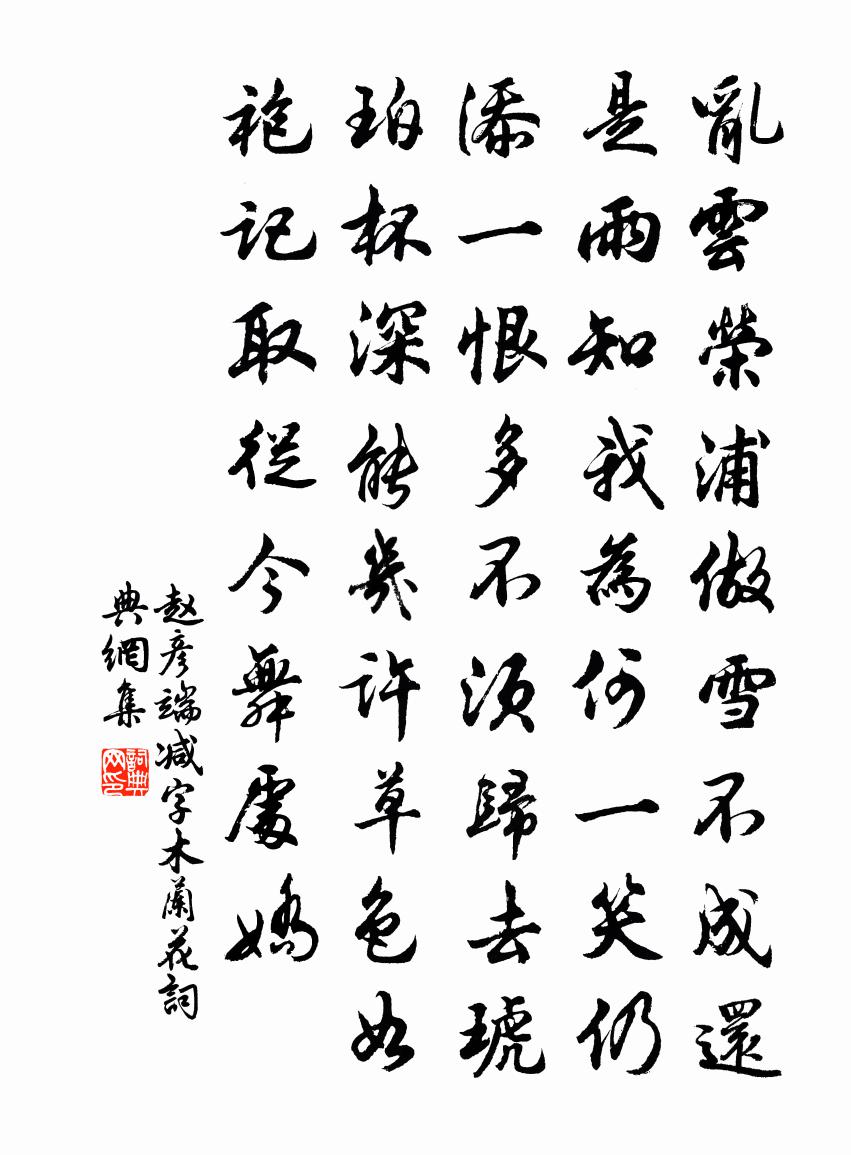 亂雲縈浦做雪不成還
是雨知我為何一笑仍
添一恨多不須歸去琥
珀杯深能幾許草色如
袍記取從今舞處嬌
赵彦端减字木蘭花詞
典網集
詞典网印